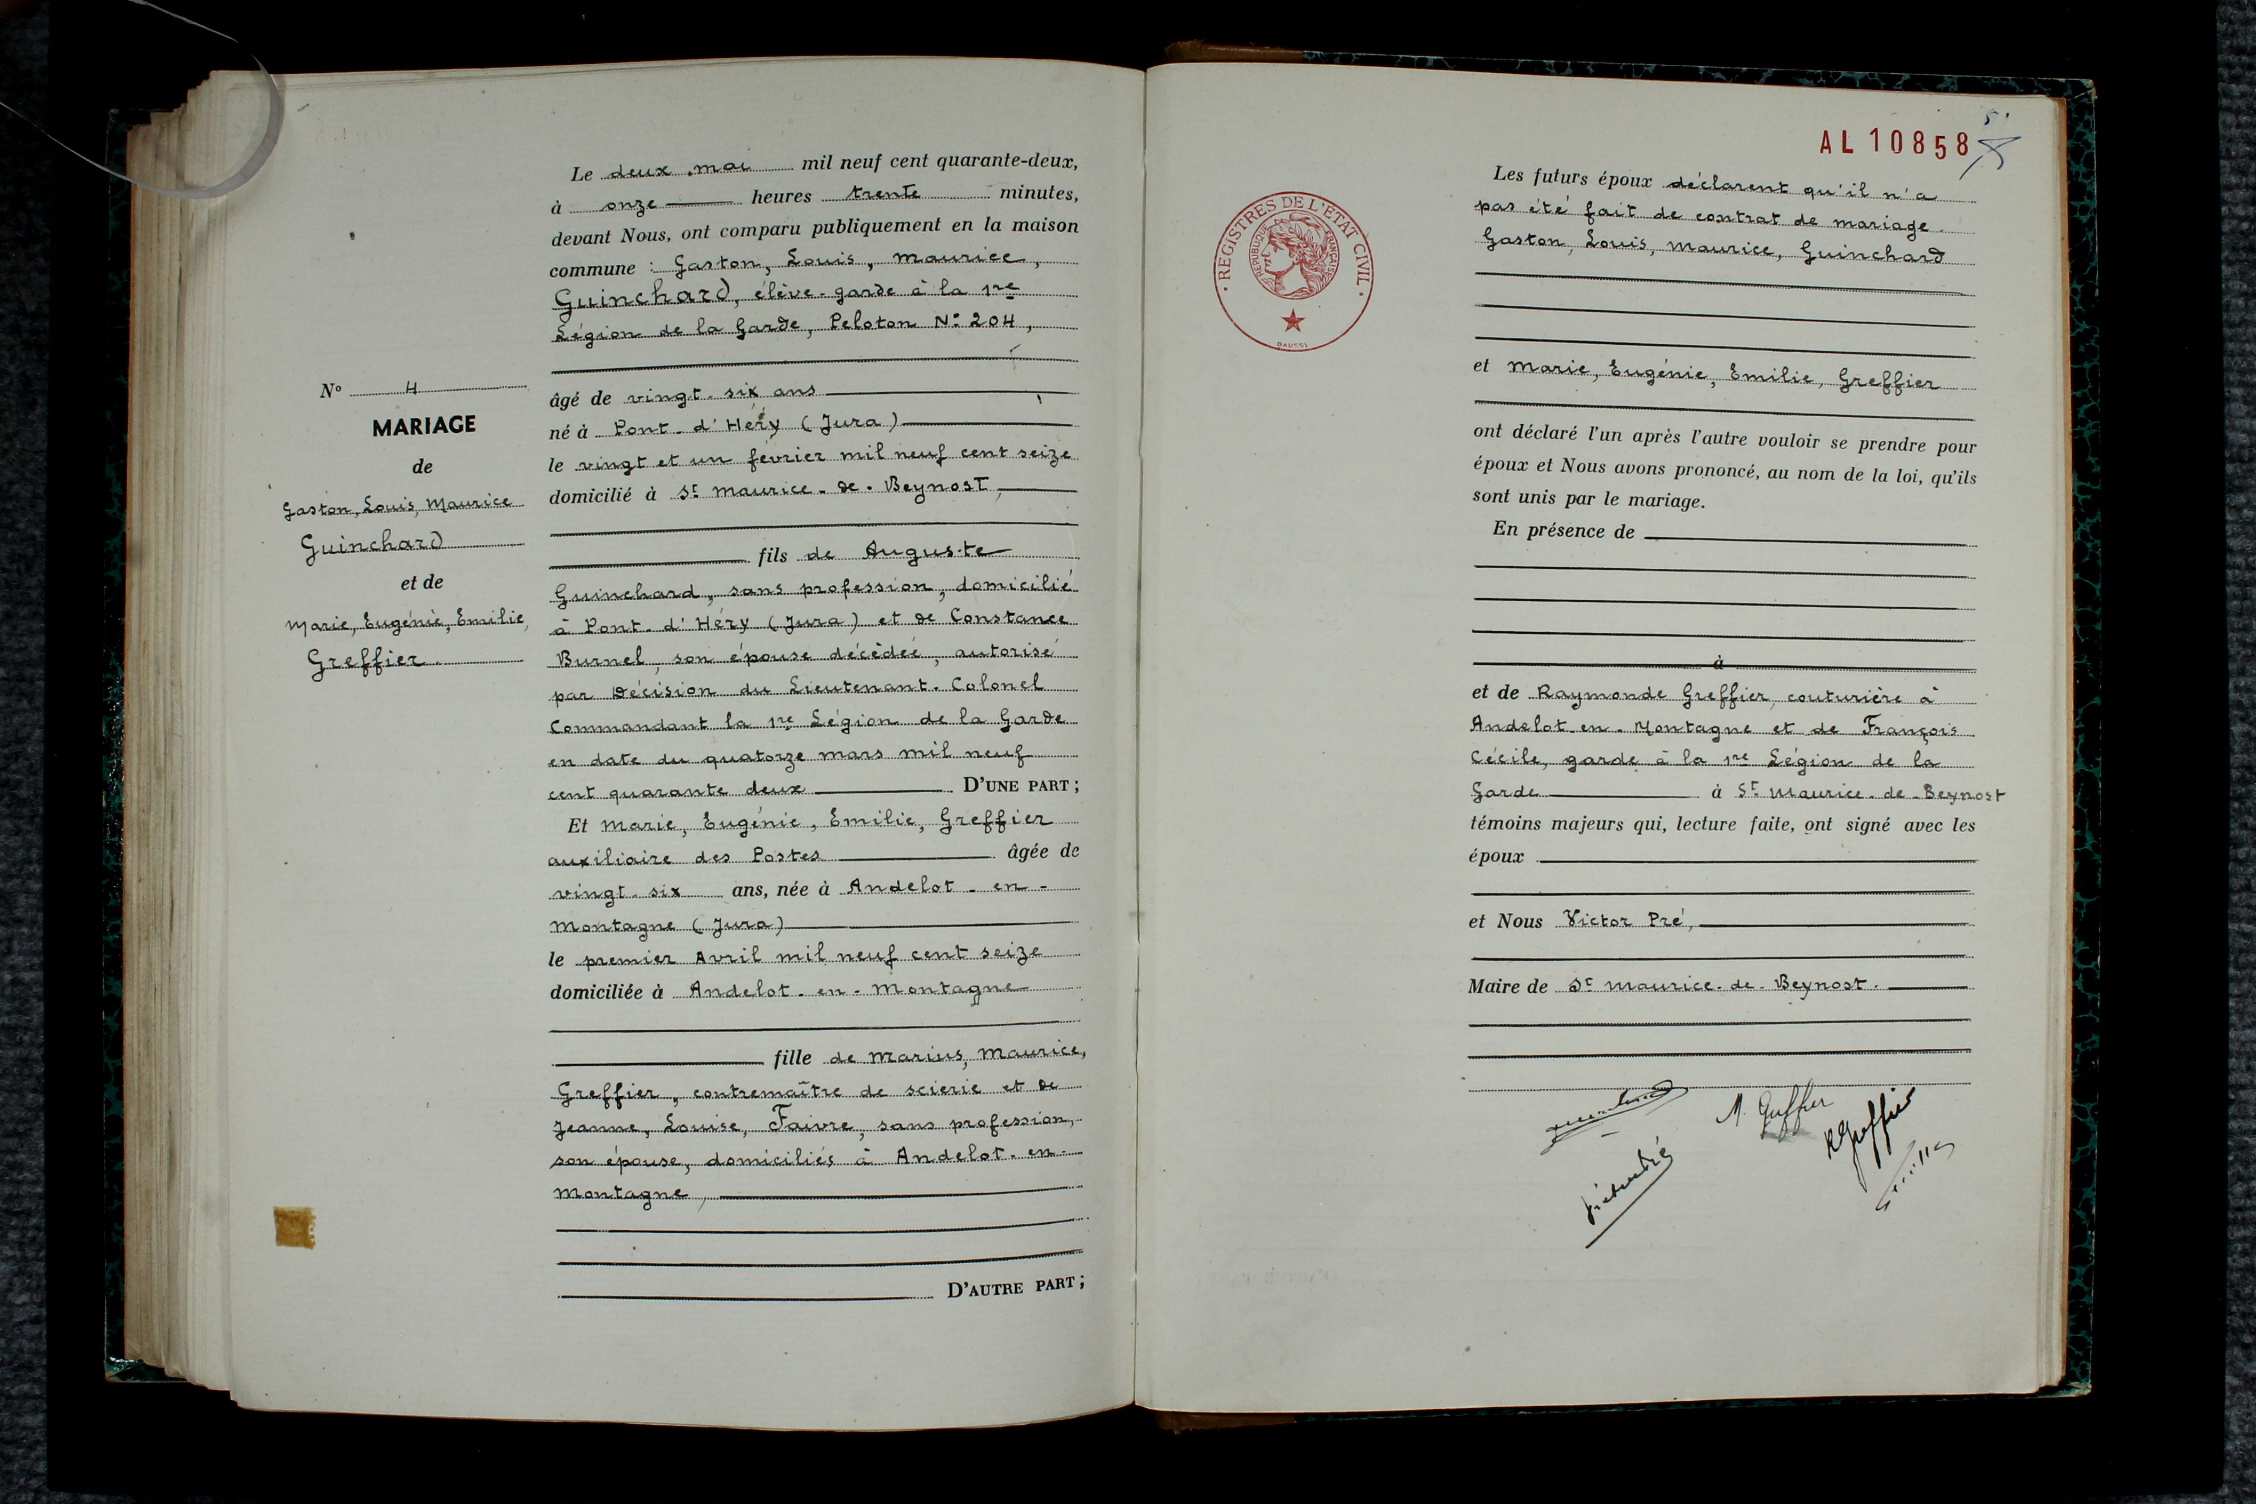 Le deux mai mil neuf cent quarante-deux,
à onze heures trente minutes,
devant Nous, ont comparu publiquement en la maison
commune : Gaston, Louis, Maurice,
Guinchard, élève-garde à la 1re
Légion de la Garde, Peloton N° 204,
âgé de vingt-six ans
né à Pont-d'Héry (Jura)
le vingt et un février mil neuf cent seize
domicilié à St Maurice-de-Beynost,
fils de Auguste
Guinchard, sans profession, domicilié
à Pont-d'Héry (Jura) et de Constance
Burnel, son épouse décédée, autorisé
par Décision du Lieutenant-Colonel
Commandant la 1re Légion de la Garde
en date du quatorze mars mil neuf
cent quarante deux D'UNE PART ;
Et Marie, Eugénie, Emilie, Greffier
auxiliaire des Postes âgée de
vingt-six ans, née à Andelot-en-
Montagne (Jura)
le premier Avril mil neuf cent seize
domiciliée à Andelot-en-Montagne
fille de Marius, Maurice,
Greffier, contremaître de scierie et de
Jeanne, Louise, Faivre, sans profession,
son épouse, domiciliés à Andelot-en-
Montagne,
D'AUTRE PART ;
N° 4
MARIAGE
de
Gaston, Louis, Maurice
Guinchard
et de
Marie, Eugénie, Emilie,
Greffier
AL 10858
5
REGISTRES DE L'ETAT CIVIL
REPUBLIQUE FRANÇAISE
DAUSSI
Les futurs époux déclarent qu'il n'a
pas été fait de contrat de mariage.
Gaston, Louis, Maurice, Guinchard
et Marie, Eugénie, Emilie, Greffier
ont déclaré l'un après l'autre vouloir se prendre pour
époux et Nous avons prononcé, au nom de la loi, qu'ils
sont unis par le mariage.
En présence de
à
et de Raymonde Greffier, couturière à
Andelot-en-Montagne et de François
Cécile, garde à la 1re Légion de la
Garde à St Maurice-de-Beynost
témoins majeurs qui, lecture faite, ont signé avec les
époux
et Nous Victor Pré,
Maire de St Maurice-de-Beynost.
M. Greffier
R Greffier